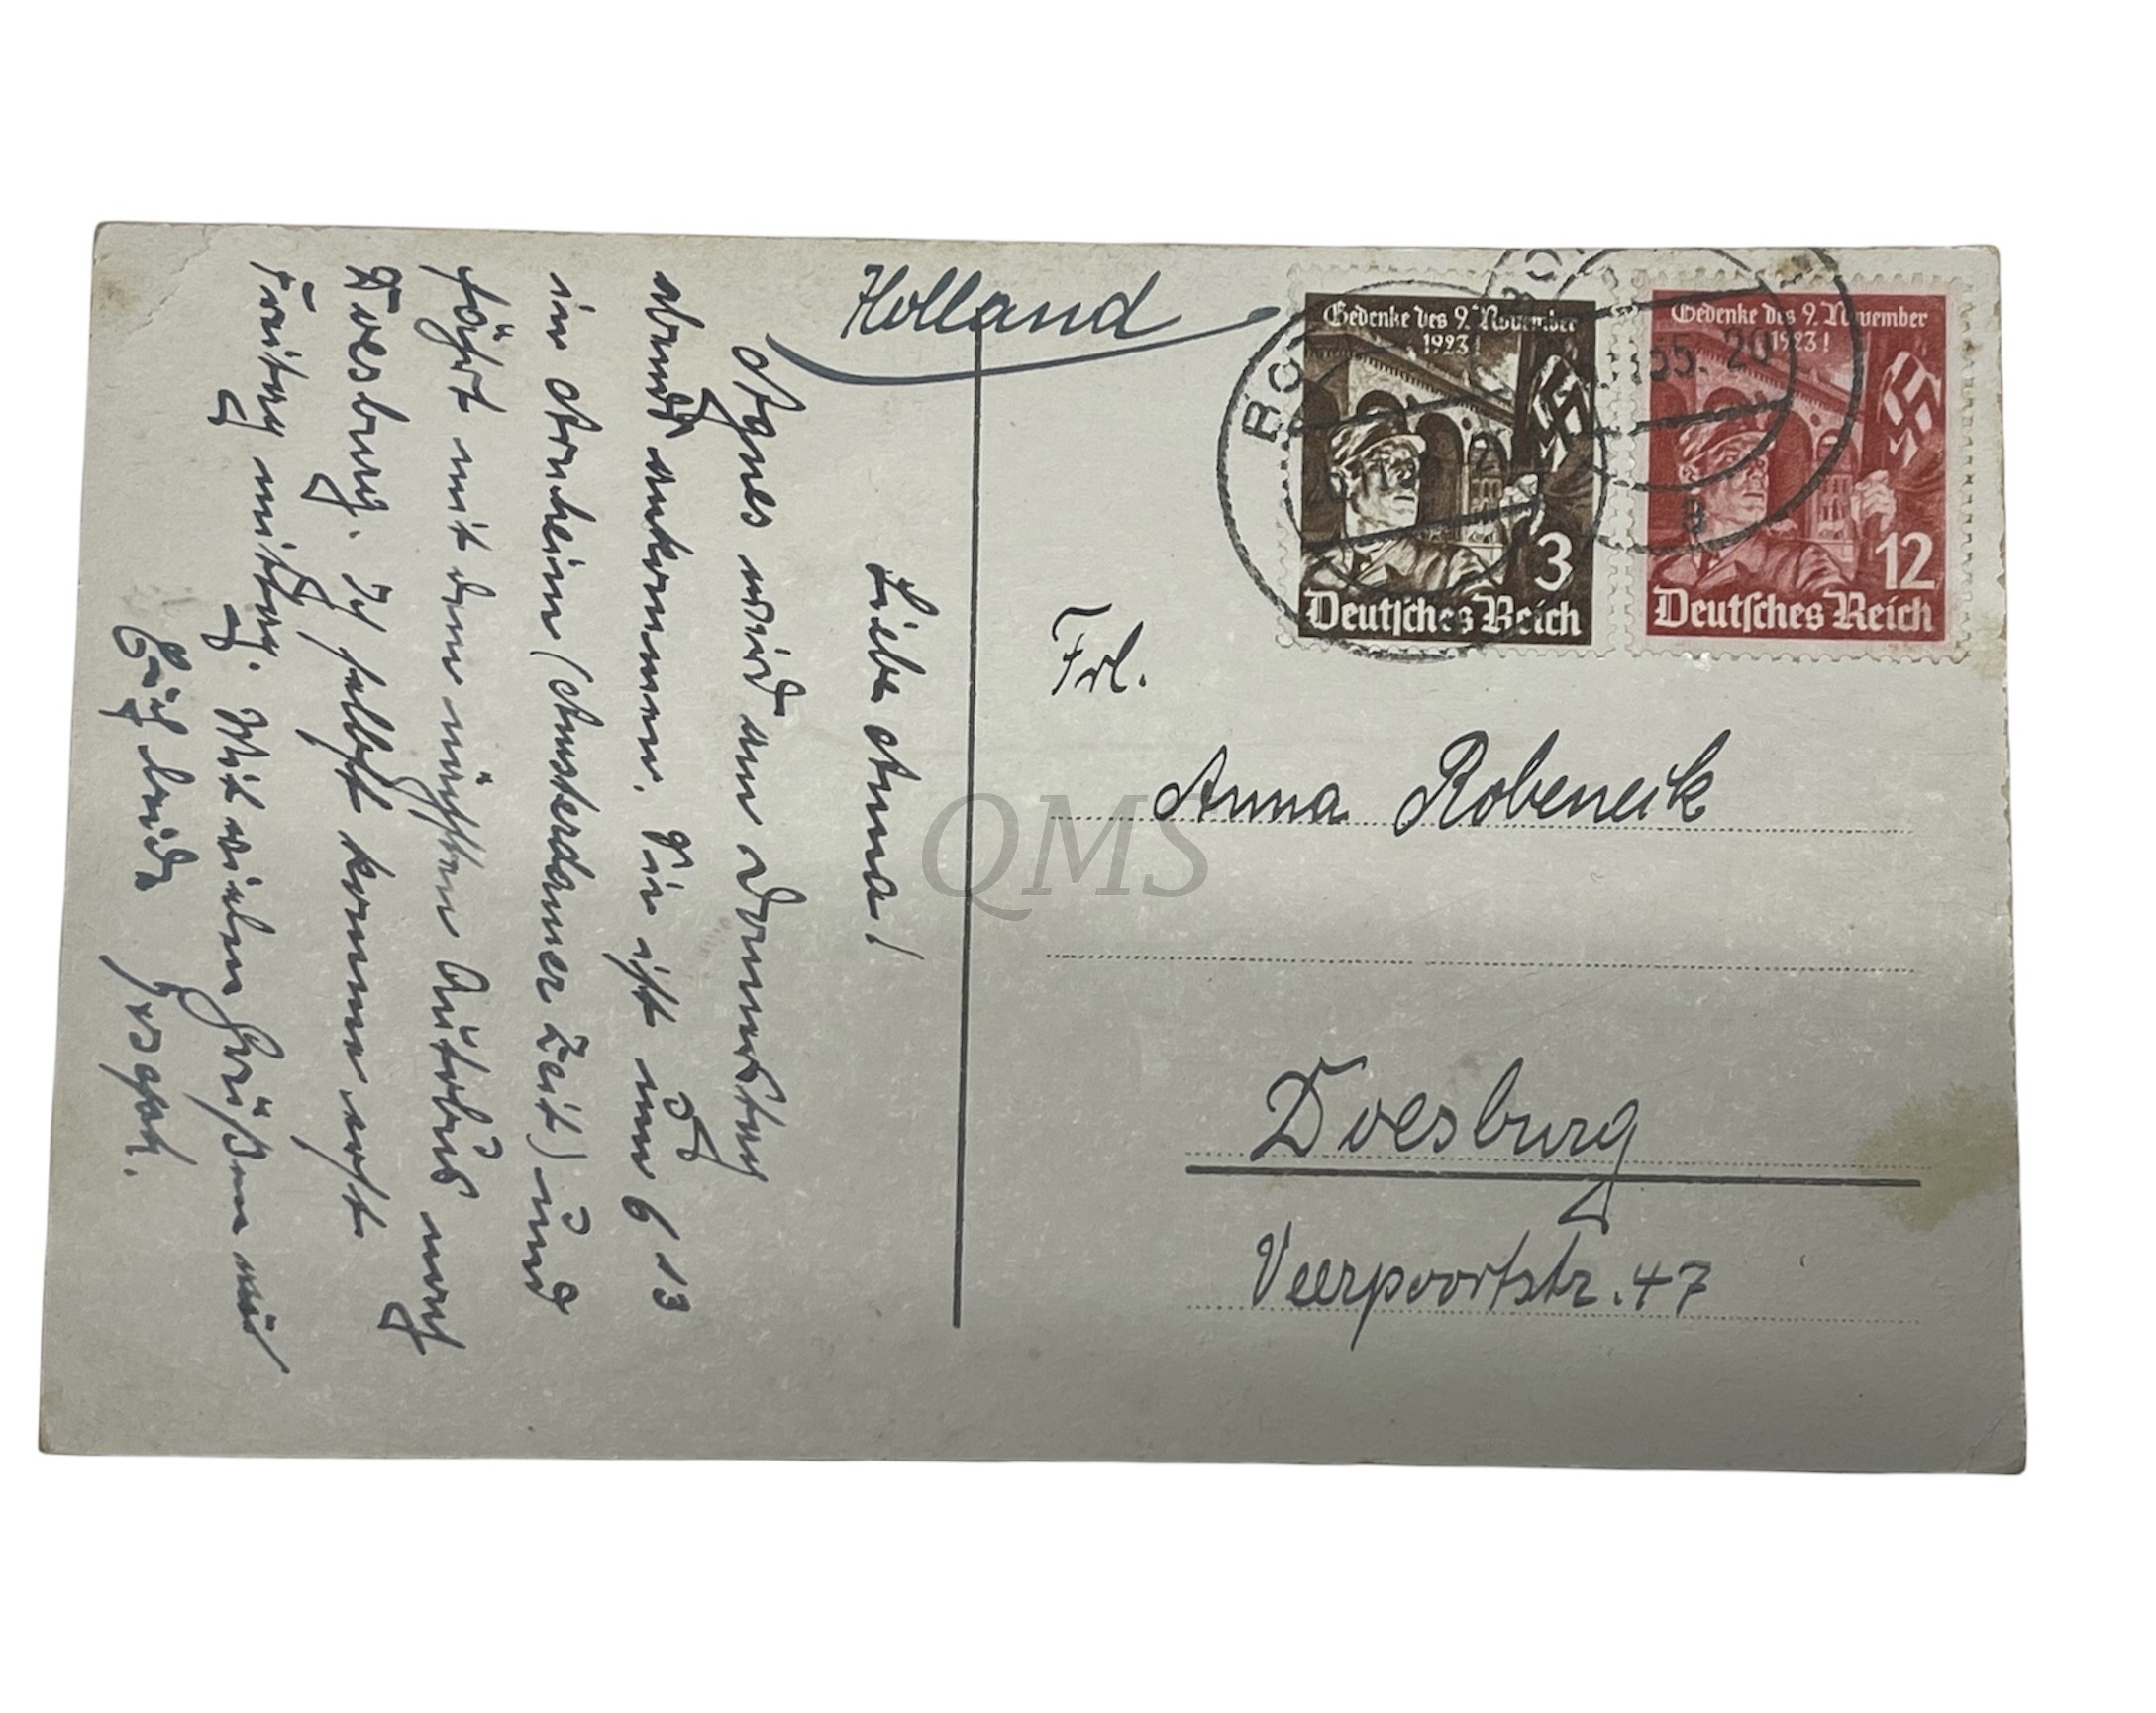 Holland
Gedenke des 9. November
1923!
3
Deutsches Reich
Gedenke des 9. November
1923!
12
Deutsches Reich
35. 20
Frl.
Anna Robeneck
Doesburg
Veerpoortstr. 47
Liebe Anna!
Agnes wird am Donnerstag
abend ankommen. Sie ist um 6 13
in Arnheim (Amsterdamer Zeit) und
fährt mit dem nächsten Autobus nach
Doesburg. Ich selbst komme erst
Freitag mittag. Mit vielen Grüßen an
Euch beide Joseph.
QMS